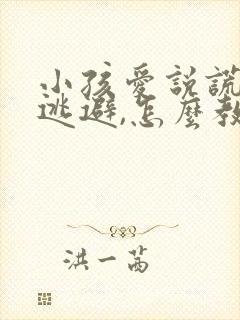 小孩愛說謊
逃避,怎麼教
洪一茜